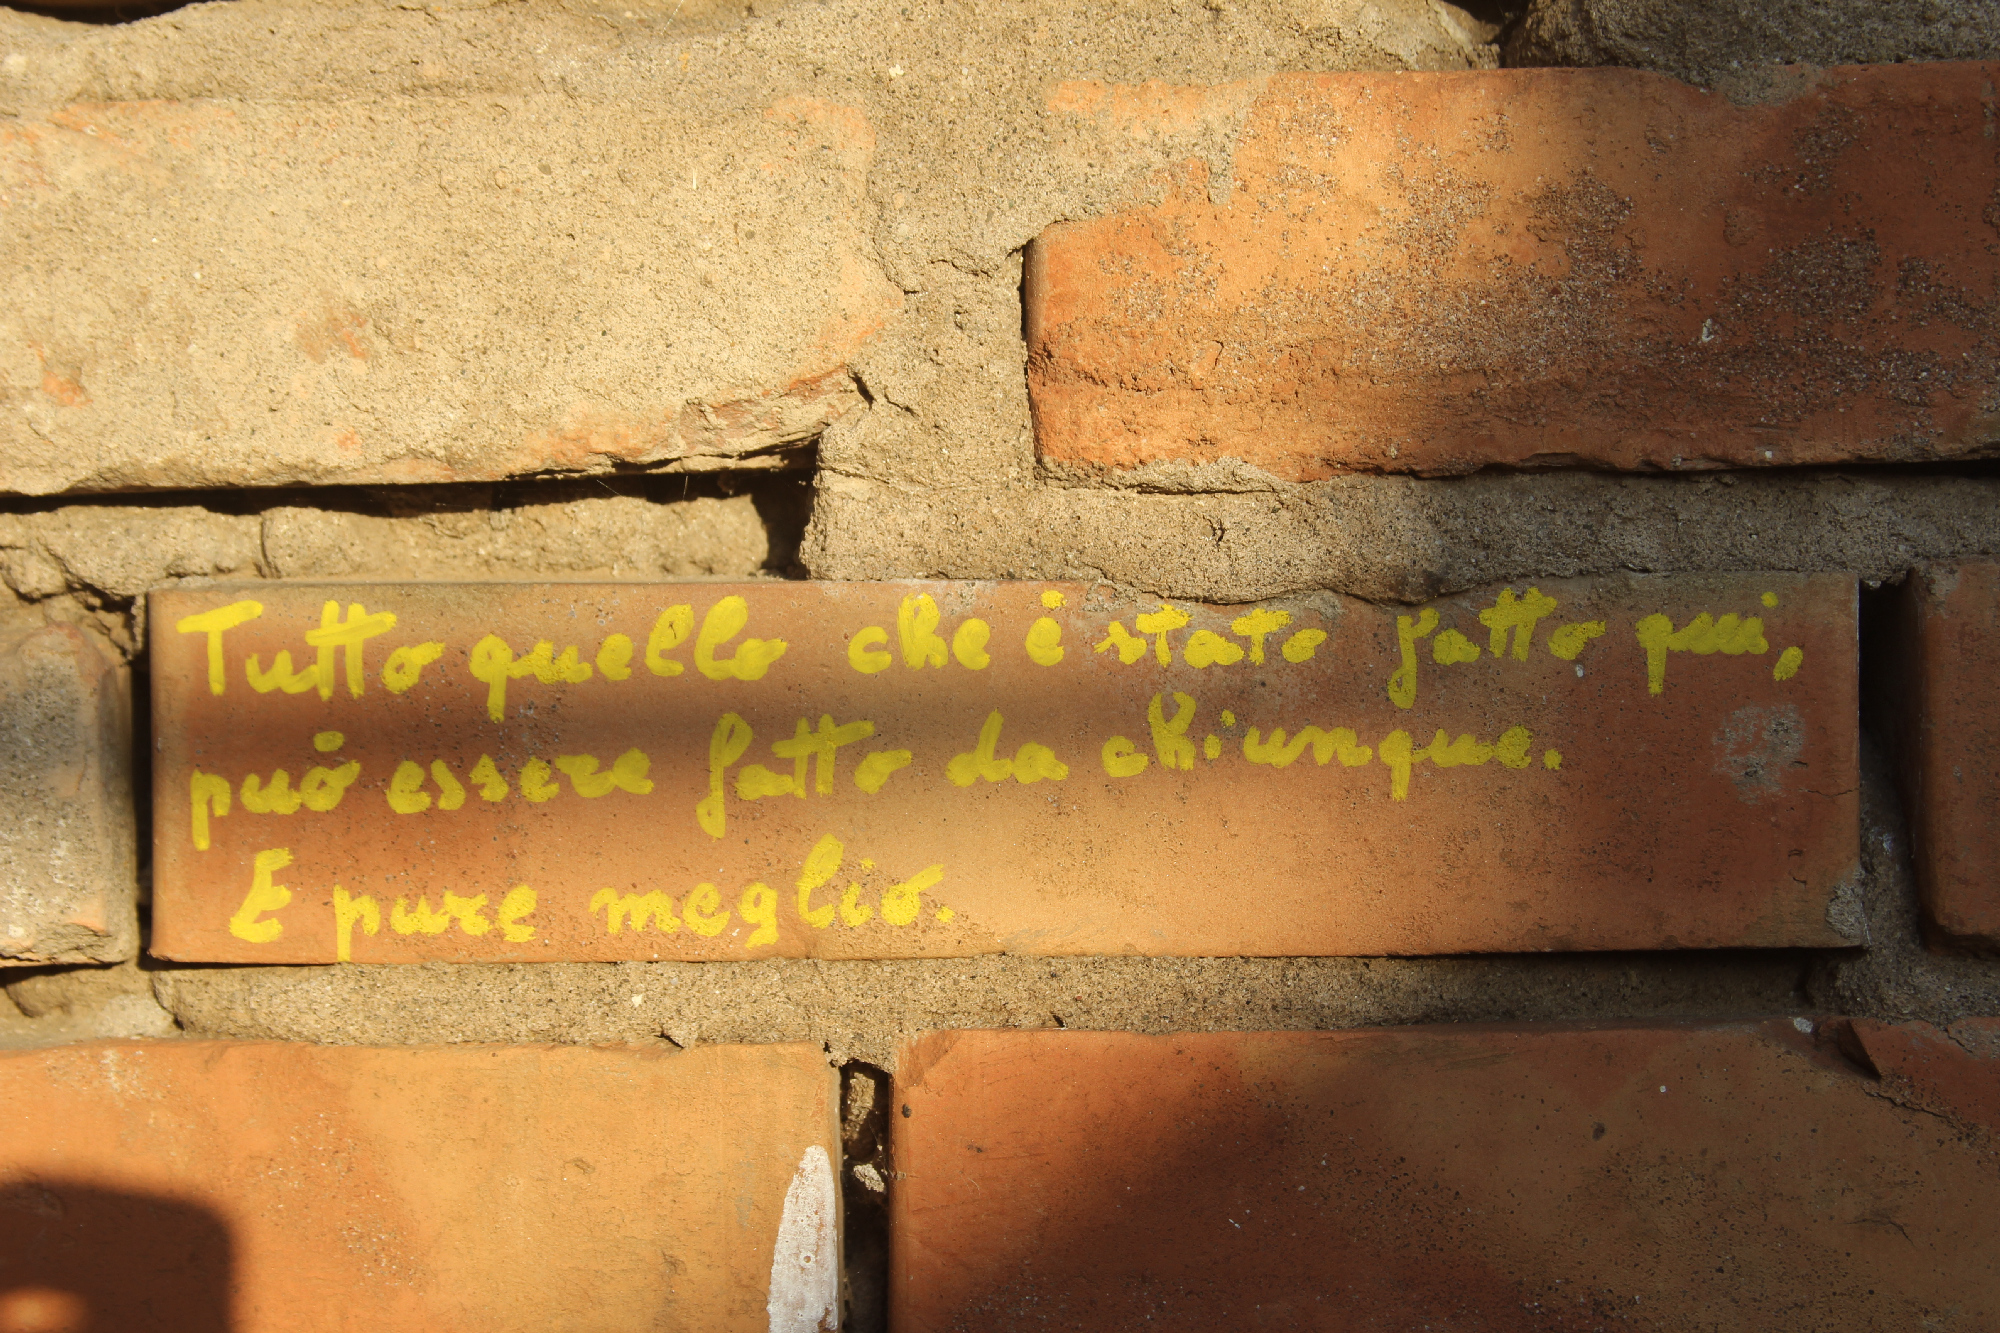 Tutto quello che è stato fatto qui,
può essere fatto da chiunque.
E pure meglio.